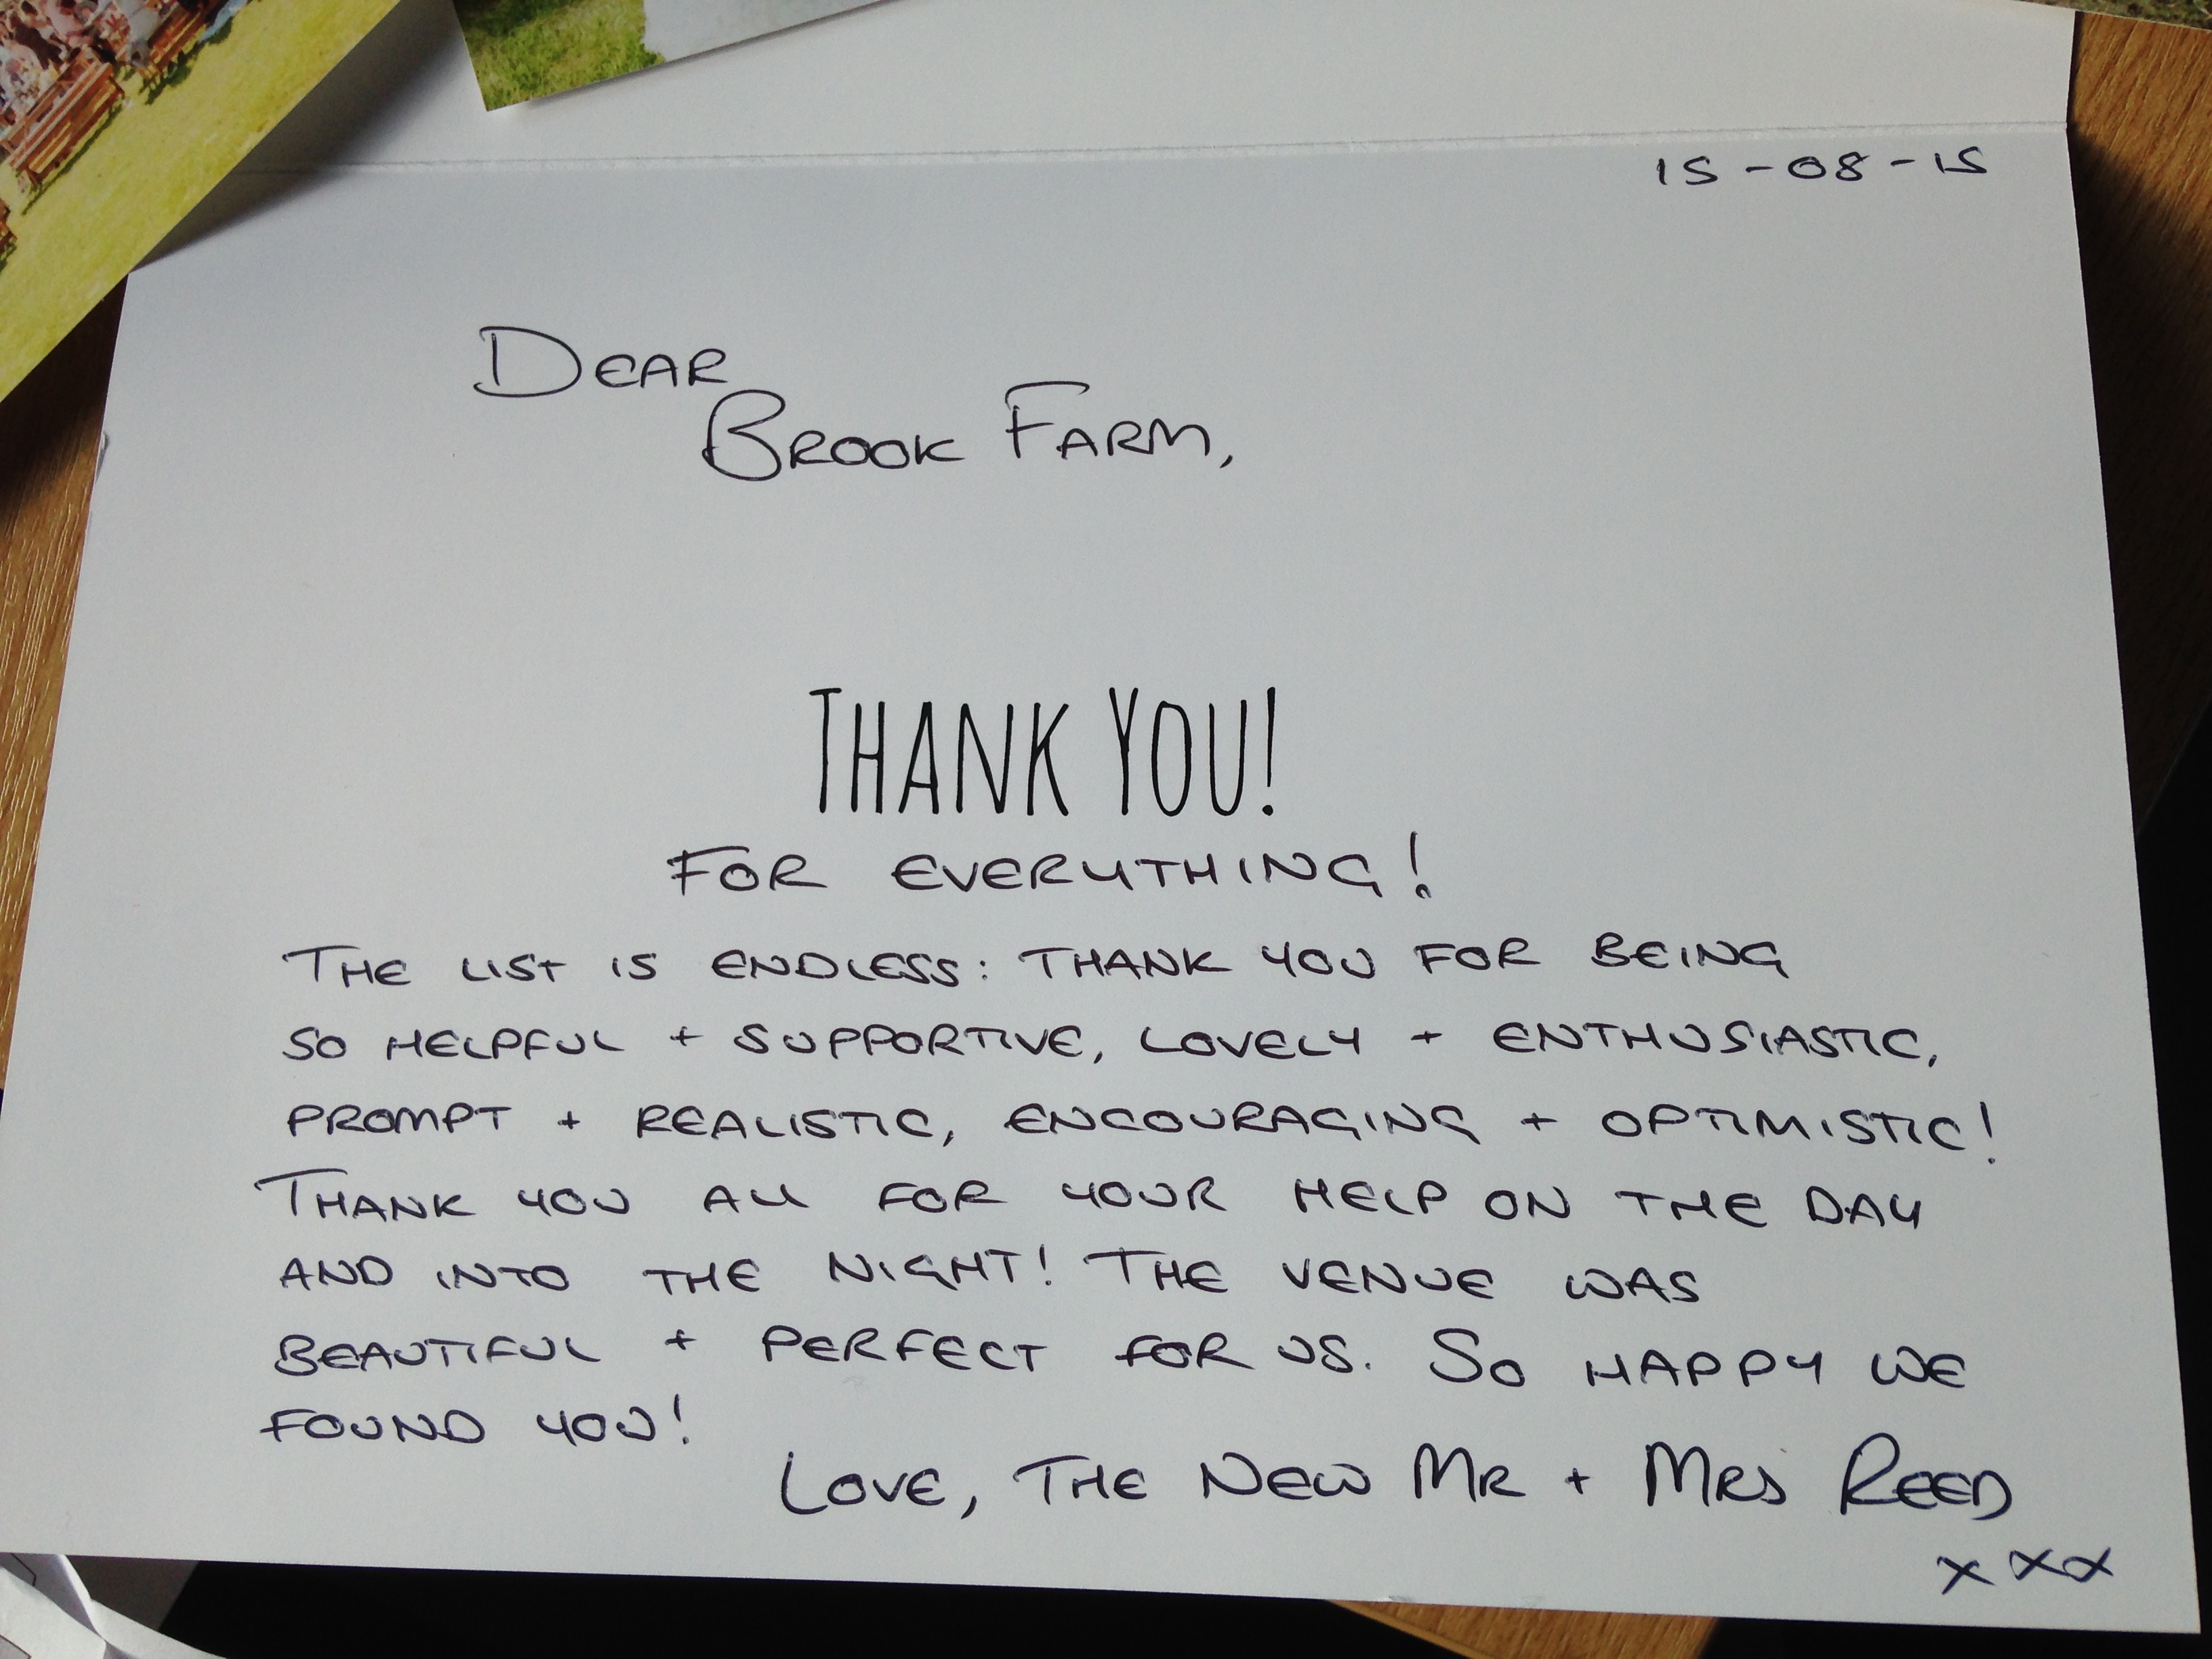 15-08-15
DEAR
BROOK FARM,
THANK YOU!
FOR EVERYTHING!
THE LIST IS ENDLESS: THANK YOU FOR BEING
SO HELPFUL + SUPPORTIVE, LOVELY + ENTHUSIASTIC,
PROMPT + REALISTIC, ENCOURAGING + OPTIMISTIC!
THANK YOU ALL FOR YOUR HELP ON THE DAY
AND INTO THE NIGHT! THE VENUE WAS
BEAUTIFUL + PERFECT FOR US. SO HAPPY WE
FOUND YOU!
LOVE, THE NEW MR + MRS REED
xxx